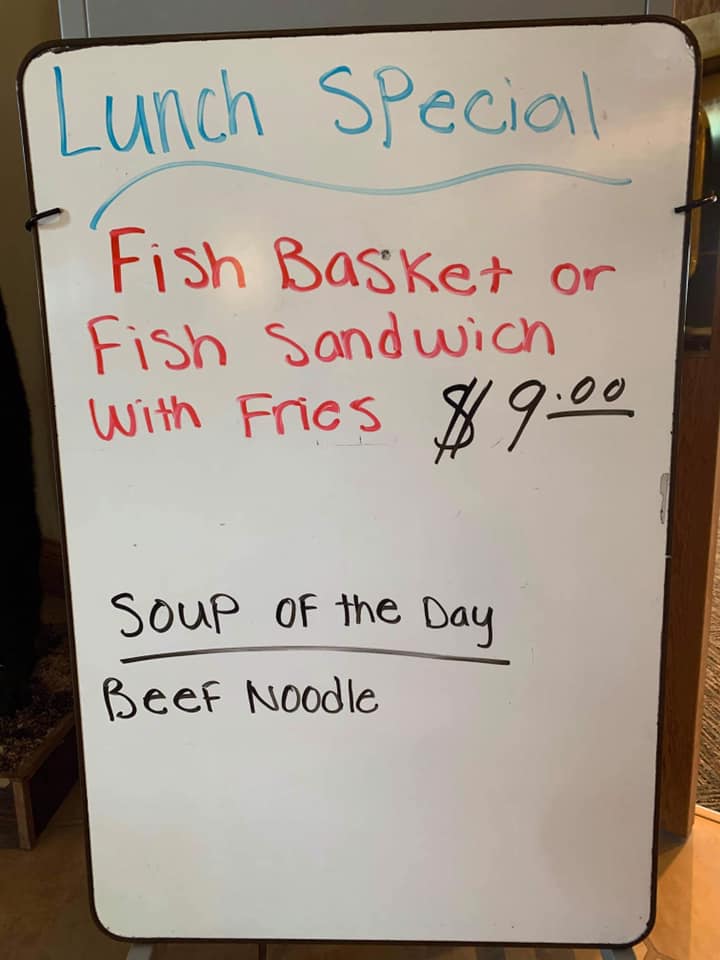 Lunch Special
Fish Basket or
Fish Sandwich
With Fries $9.00
Soup of the Day
Beef Noodle